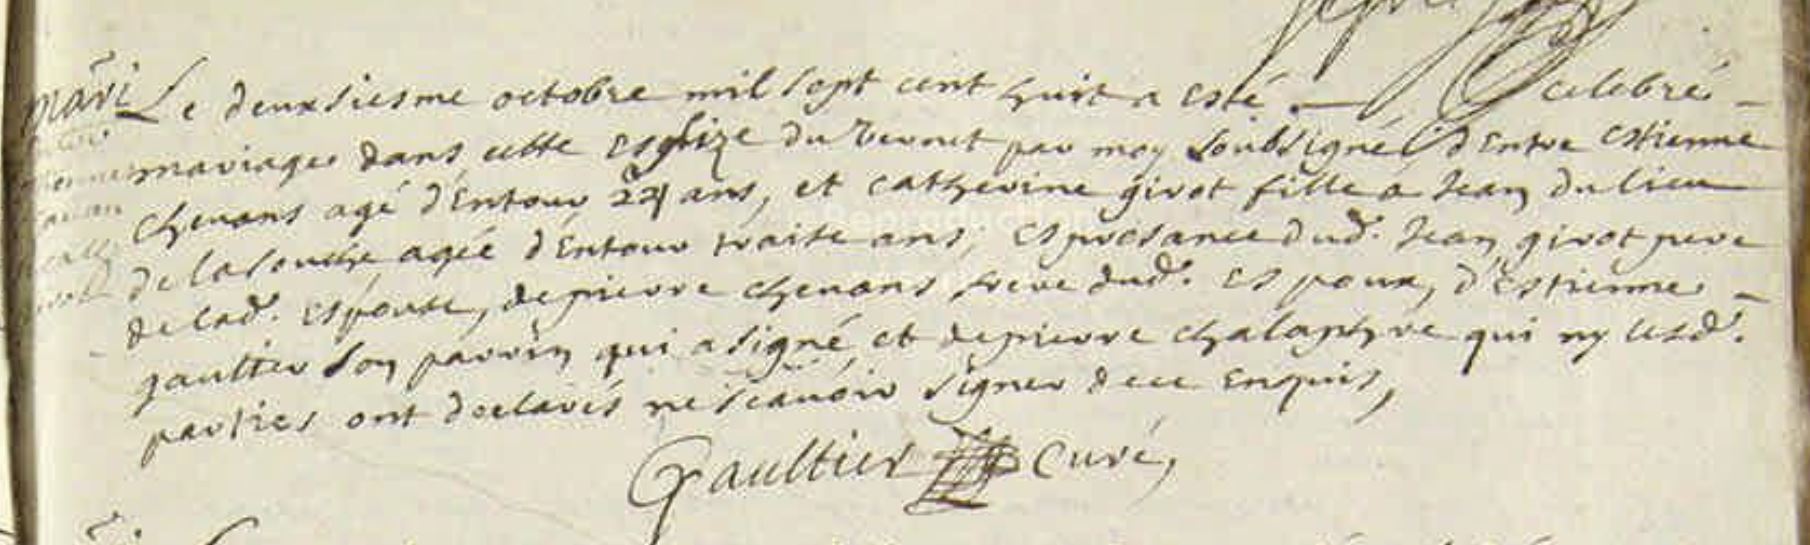 mari Le deuxsiesme octobre mil sept cent huit a esté celebré
mariage dans cette esglize du Vernet par moy soubsigné d'Entre Estienne
chenans agé d'Entour 24 ans, et catherine girot fille a Jean du lieu
de lasouche agée d'Entour traite ans, Es presance dud. Jean girot pere
de lad. Espouse, de pierre chenans frere dud. Espoux, d'Estienne
gaultier son parrin qui a signé et de pierre chalaphre qui ny lesd.
parties ont declarés ne scavoir signer de ce Enquis,
Gaultier curé,